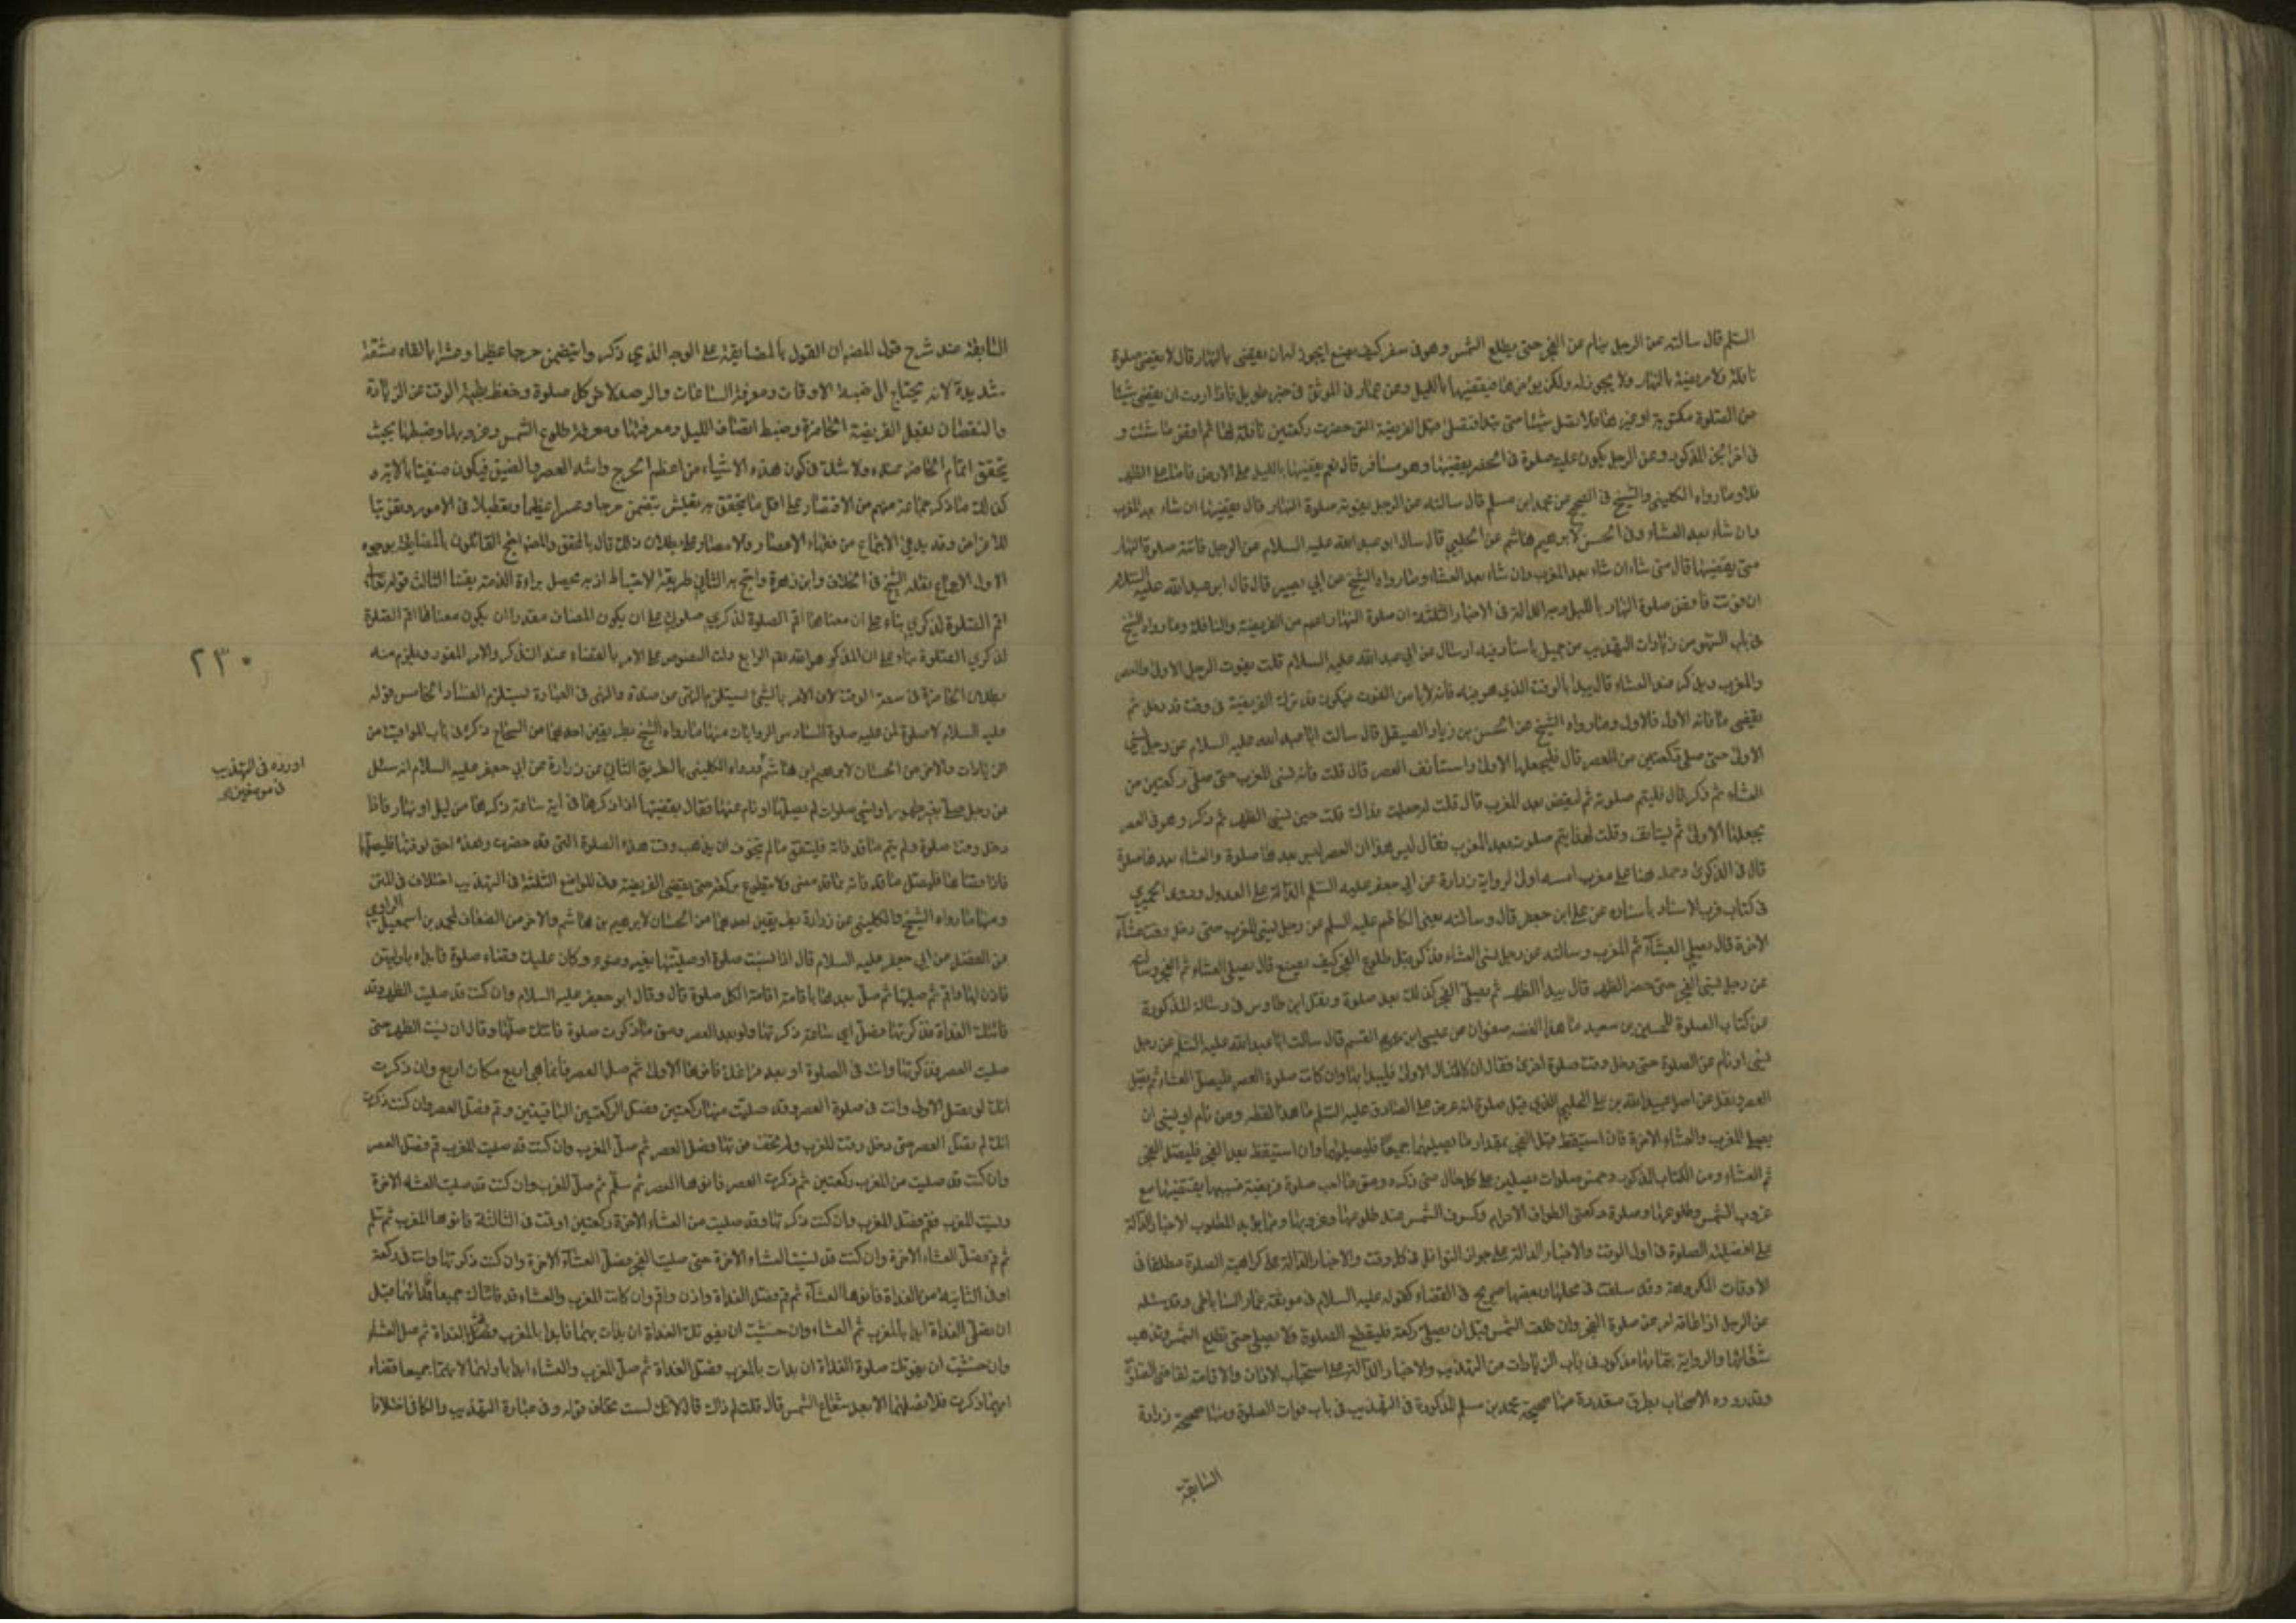 السلم قال سالته عن الرجل ينام عن الفجر حتى يطلع الشمس وهو في سفر كيف يصنع ايجوز له ان يقضى بالنهار قال لا يقضى صلوة
نافلة ولا فريضة بالنهار ولا يجوز له ولكن يؤخرها فيقضيها بالليل وعن عمار في الموثق في خبر طويل فاذا اردت ان تقضى شيئا
من الصلوة مكتوبة او غيرها فلا تصل شيئا حتى تبدا فتصلى قبل الفريضة التي حضرت ركعتين نافلة لها ثم اقض ما شئت و
في اخر الخبر المذكور وعن الرجل يكون عليه صلوة في الحضر يقضيها وهو مسافر قال نعم يقضيها بالليل على الارض فاما على الظهر
فلا وما رواه الكليني والشيخ في الصحيح عن محمد ابن مسلم قال سالته عن الرجل يفوته صلوة النهار قال يقضيها ان شاء بعد المغرب
وان شاء بعد العشاء وفي الحسن لابرهيم هاشم عن الحلبي قال سال ابو عبد الله عليه السلام عن الرجل فاتته صلوة النهار
متى يقضيها قال متى شاء ان شاء بعد المغرب وان شاء بعد العشاء وما رواه الشيخ عن ابي بصير قال قال ابو عبد الله عليه السلام
ان فوت فاقض صلوة النهار بالليل وجه الدلالة في الاخبار الثلثة ان صلوة النهار اعم من الفريضة والنافلة وما رواه الشيخ
في باب السهو من زيادات التهذيب عن جميل باسناد فيه ارسال عن ابي عبد الله عليه السلام قلت يفوت الرجل الاولى والعصر
والمغرب ويذكر عند العشاء قال يبدا بالوقت الذي هو فيه فانه لا يامن الفوت فيكون قد ترك الفريضة في وقت قد دخل ثم
يقضى ما فاته الاول فالاول وما رواه الشيخ عن الحسن بن زياد الصيقل قال سالت ابا عبد الله عليه السلام عن رجل نسى
الاولى حتى صلى ركعتين من العصر قال فليجعلها الاولى واستانف العصر قال قلت فانه نسى المغرب حتى صلى ركعتين من
العشاء ثم ذكر قال فليتم صلوته ثم ليقض بعد المغرب قال قلت له جعلت فداك قلت حين نسى الظهر ثم ذكر وهو في العصر
يجعلها الاولى ثم ليستانف وقلت لهذا يتم صلوته بعد المغرب فقال ليس هذا ان العصر ليس بعدها صلوة والعشاء بعدها صلوة
قال في الذكرى وحمل هنا على مغرب امسه اولى لرواية زرارة عن ابي جعفر عليه السلم الدالة على العدول وروى الحميري
في كتاب قرب الاسناد باسناده عن علي ابن جعفر قال وسالته يعنى الكاظم عليه السلم عن رجل نسى المغرب حتى دخل وقت عشاء
الاخرة قال يصلى العشاء ثم المغرب وسالته عن رجل نسى العشاء فذكر قبل طلوع الفجر كيف يصنع قال يصلى العشاء ثم الفجر وسالته
عن رجل نسى الفجر حتى حضر الظهر قال يبدا الظهر ثم يصلى الفجر كذلك بعد صلوة ونقل ابن طاوس في رسالة المذكورة
من كتاب الصلوة للحسين بن سعيد ما هذا لفظه صفوان عن عيسى ابن القسم قال سالت ابا عبد الله عليه السلم عن رجل
نسى او نام عن الصلوة حتى دخل وقت صلوة اخرى فقال ان كانت الاولى فليبدا بها وان كانت صلوة العصر فليصل العشاء ثم يصلى
العصر ونقل عن اصل عبيد الله بن علي الحلبي الذي قبل صلوة انه عرض على الصادق عليه السلم ما هذا لفظه ومن نام او نسى ان
يصلى المغرب والعشاء الاخرة فان استيقظ قبل الفجر بمقدار ما يصليهما جميعا فليصليهما وان استيقظ بعد الفجر فليصل الفجر
ثم العشاء ومن الكتاب المذكور وخمس صلوات يصلين على كل حال متى ذكره صلوة فريضة نسيها يقضيها مع
غروب الشمس وطلوعها وصلوة ركعتي الطواف الاحرام وكسوف الشمس عند طلوعها وغروبها ومما يؤيد المطلوب الاخبار الدالة
على افضلية الصلوة في اول الوقت والاخبار الدالة على جواز النوافل في كل وقت والاخبار الدالة على كراهية الصلوة مطلقا في
الاوقات المكروهة وقد سلفت في محلها وبعضها صريح في القضاء كقوله عليه السلام في موثقة عمار الساباطى وقد سئله
عن الرجل اذا فاته صلوة الفجر وان طلعت الشمس قبل ان يصلى ركعة فليقطع الصلوة ولا يصلى حتى تطلع الشمس وتذهب
شعاعها والرواية بتمامها مذكورة في باب الزيادات من التهذيب والاخبار الدالة على استحباب الاذان والاقامة لقاضى الصلوة
وقد رووه الاصحاب بطرق متعددة منها صحيحة محمد بن مسلم المذكورة في التهذيب في باب فوات الصلوة ومنها صحيحة زرارة
السابقة
السابقة عند شرح قول المصنف ان القول بالمضايقة على الوجه الذي ذكر وا يتضمن حرجا عظيما وعسرا بالغاه مشقة
شديدة لانه يحتاج الى ضبط الاوقات ومعرفة الساعات والرصد لاخر كل صلوة وحفظ الوقت عن الزيادة
والنقصان لفعل الفريضة الحاضرة وضبط انصاف الليل ومعرفتها ومعرفة طلوع الشمس وغروبها وضبطها بحيث
يتحقق اتمام الحاضر عنده ولا شك في كون هذه الاشياء من اعظم الحرج واشد العسر والضيق فيكون منفيا بالاية و
كذلك ما ذكره جماعة منهم من الاقتصار على اقل ما يتحقق به تعيش يتضمن حرجا وعسرا عظيما وتعطيلا في الامور وتفويتا
للاغراض وقد يدعى الاجماع من فقهاء الامصار والاعصار على بطلان ذلك قال بالمحقق والمصنف احتج القائلون بالمضايقة بوجوه
الاول الاجماع نقله الشيخ في الخلاف وابن زهرة واحتج به الثاني طريقة الاحتياط اذ به يحصل براءة الذمة يقينا الثالث قوله تعالى
اقم الصلوة لذكرى بناء على ان معناها اقم الصلوة لذكرى صلوتى على ان يكون المضاف مقدرا ان يكون معناها اقم الصلوة
لذكرى الصلوة بناء على ان المذكور هو الله نعم الرابع دلت النصوص على الامر بالقضاء عند التذكر والامر للفور ويلزم منه
بطلان الحاضرة في سعة الوقت لان الامر بالشئ يستلزم النهى عن ضده والنهى في العبادة يستلزم الفساد الخامس قوله
عليه السلام لا صلوة لمن عليه صلوة السادس الروايات منها ما رواه الشيخ بطريقين احدهما من الصحاح ذكره في باب المواقيت من
الزيادات والاخر من الحسان لابرهيم ابن هاشم ورواه الكليني بالطريق الثاني عن زرارة عن ابي جعفر عليه السلام انه سئل
عن رجل صلى بغير طهور او نسى صلوات لم يصلها او نام عنها فقال يقضيها اذا ذكرها في اية ساعة ذكرها من ليل او نهار فاذا
دخل وقت صلوة ولم يتم ما قد فاته فليقض ما لم يتخوف ان يذهب وقت هذه الصلوة التي قد حضرت وهذه احق لوقتها فليصلها
فاذا قضاها فليصل ما قد فاته مما قد مضى ولا يتطوع بركعة حتى يقضى الفريضة وفي المواضع الثلثة في التهذيب اختلاف في المتن
ومنها ما رواه الشيخ والكليني عن زرارة بطريقين احدهما من الحسان لابرهيم بن هاشم والاخر من الضعاف لمحمد بن اسمعيل الراوي
عن الفضل عن ابي جعفر عليه السلام قال اذا نسيت صلوة او صليتها بغير وضوء وكان عليك قضاء صلوة فابداء باوليهن
فاذن لها واقم ثم صلها ثم صل بعدها باقامة اقامة لكل صلوة قال وقال ابو جعفر عليه السلام وان كنت قد صليت الظهر وقد
فاتتك الغداة فذكرتها فصل اي ساعة ذكرتها ولو بعد العصر ومتى ما ذكرت صلوة فاتتك صليتها وقال ان نسيت الظهر حتى
صليت العصر فذكرتها وانت في الصلوة او بعد فراغك فانوها الاولى ثم صل العصر فانما هي اربع مكان اربع وان ذكرت
انك لم تصل الاولى وانت في صلوة العصر وقد صليت منها ركعتين فصل الركعتين الباقيتين وقم فصل العصر وان كنت ذكرت
انك لم تصل العصر حتى دخل وقت المغرب ولم تخف فوتها فصل العصر ثم صل المغرب وان كنت قد صليت المغرب قم فصل العصر
وان كنت قد صليت من المغرب ركعتين ثم ذكرت العصر فانوها العصر ثم سلم ثم صل المغرب وان كنت قد صليت العشاء الاخرة
ونسيت المغرب فقم فصل المغرب وان كنت ذكرتها وقد صليت من العشاء الاخرة ركعتين او قمت في الثالثة فانوها المغرب ثم سلم
ثم قم فصل العشاء الاخرة وان كنت قد نسيت العشاء الاخرة حتى صليت الفجر فصل العشاء الاخرة وان كنت ذكرتها وانت في ركعة
او في الثانية من الغداة فانوها العشاء ثم قم فصل الغداة واذن واقم وان كانت المغرب والعشاء قد فاتتاك جميعا فابدا بهما قبل
ان تصلى الغداة ابدا بالمغرب ثم العشاء وان خشيت ان يفوتك الغداة ان بدات بهما فابدا بالمغرب فصل الغداة ثم صل العشاء
وان خشيت ان يفوتك صلوة الغداة ان بدات بالمغرب فصل الغداة ثم صل المغرب والعشاء ابدا باولهما لانهما جميعا قضاء
ايهما ذكرت فلا تصلهما الا بعد شعاع الشمس قال قلت لم ذاك قال لانك لست تخاف فوته وفي عبارة التهذيب والكافي اختلافا
٢٣٠
اورده في التهذيب
في موضعين